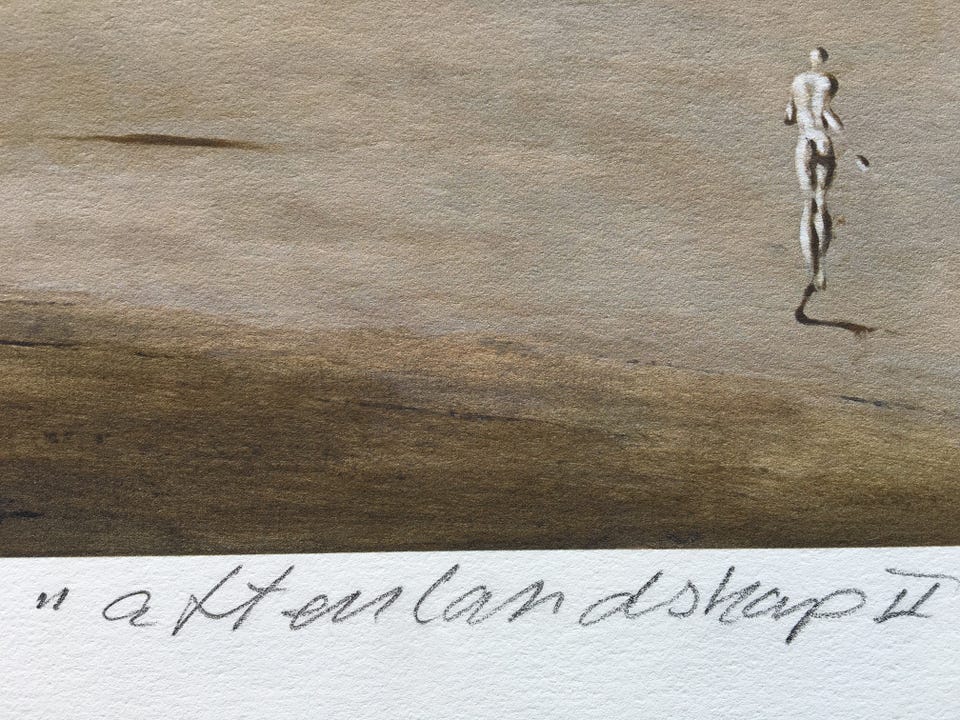 "aftenlandskap II"